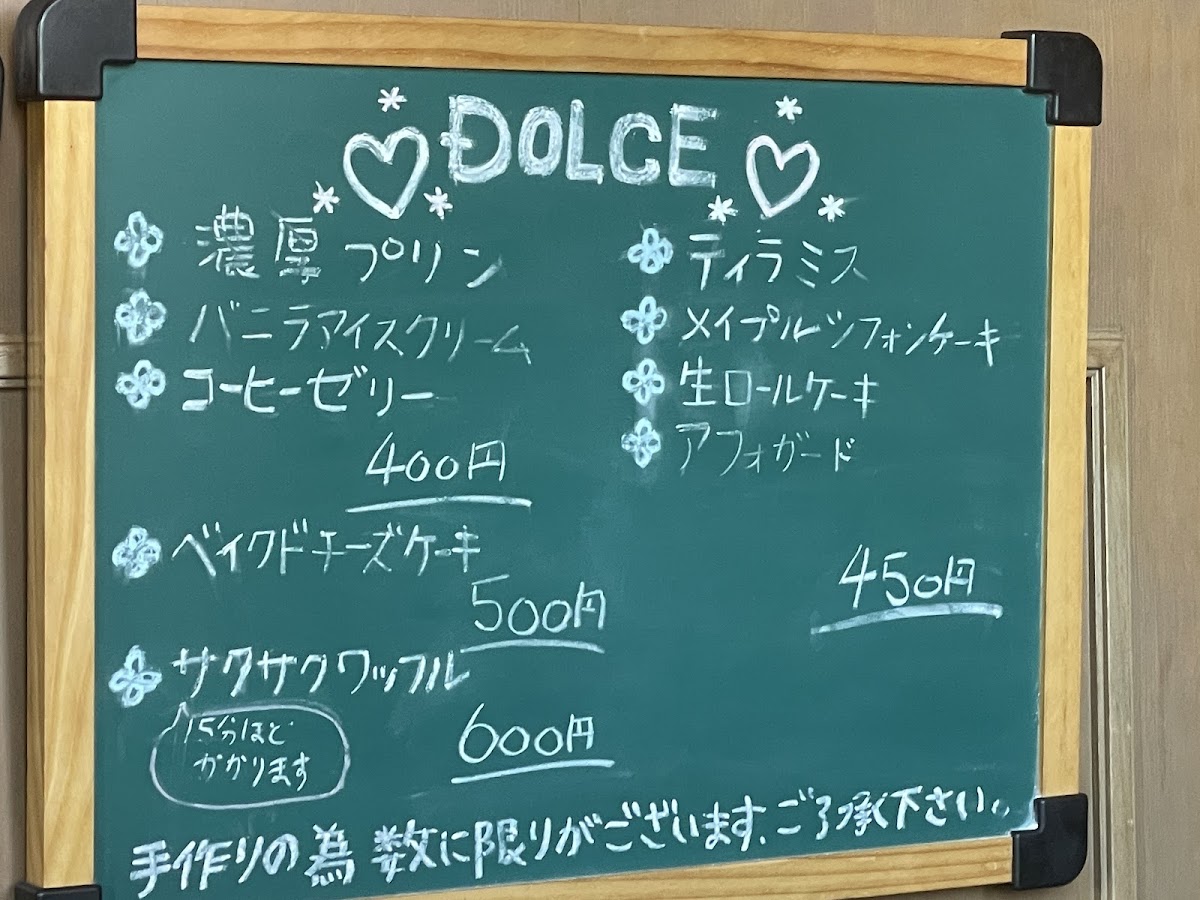 DOLCE
濃厚プリン
バニラアイスクリーム
コーヒーゼリー
400円
ベイクドチーズケーキ
500円
サクサクワッフル
15分ほど
かかります
600円
ティラミス
メイプルシフォンケーキ
生ロールケーキ
アフォガード
450円
手作りの為数に限りがございます、ご了承下さい。